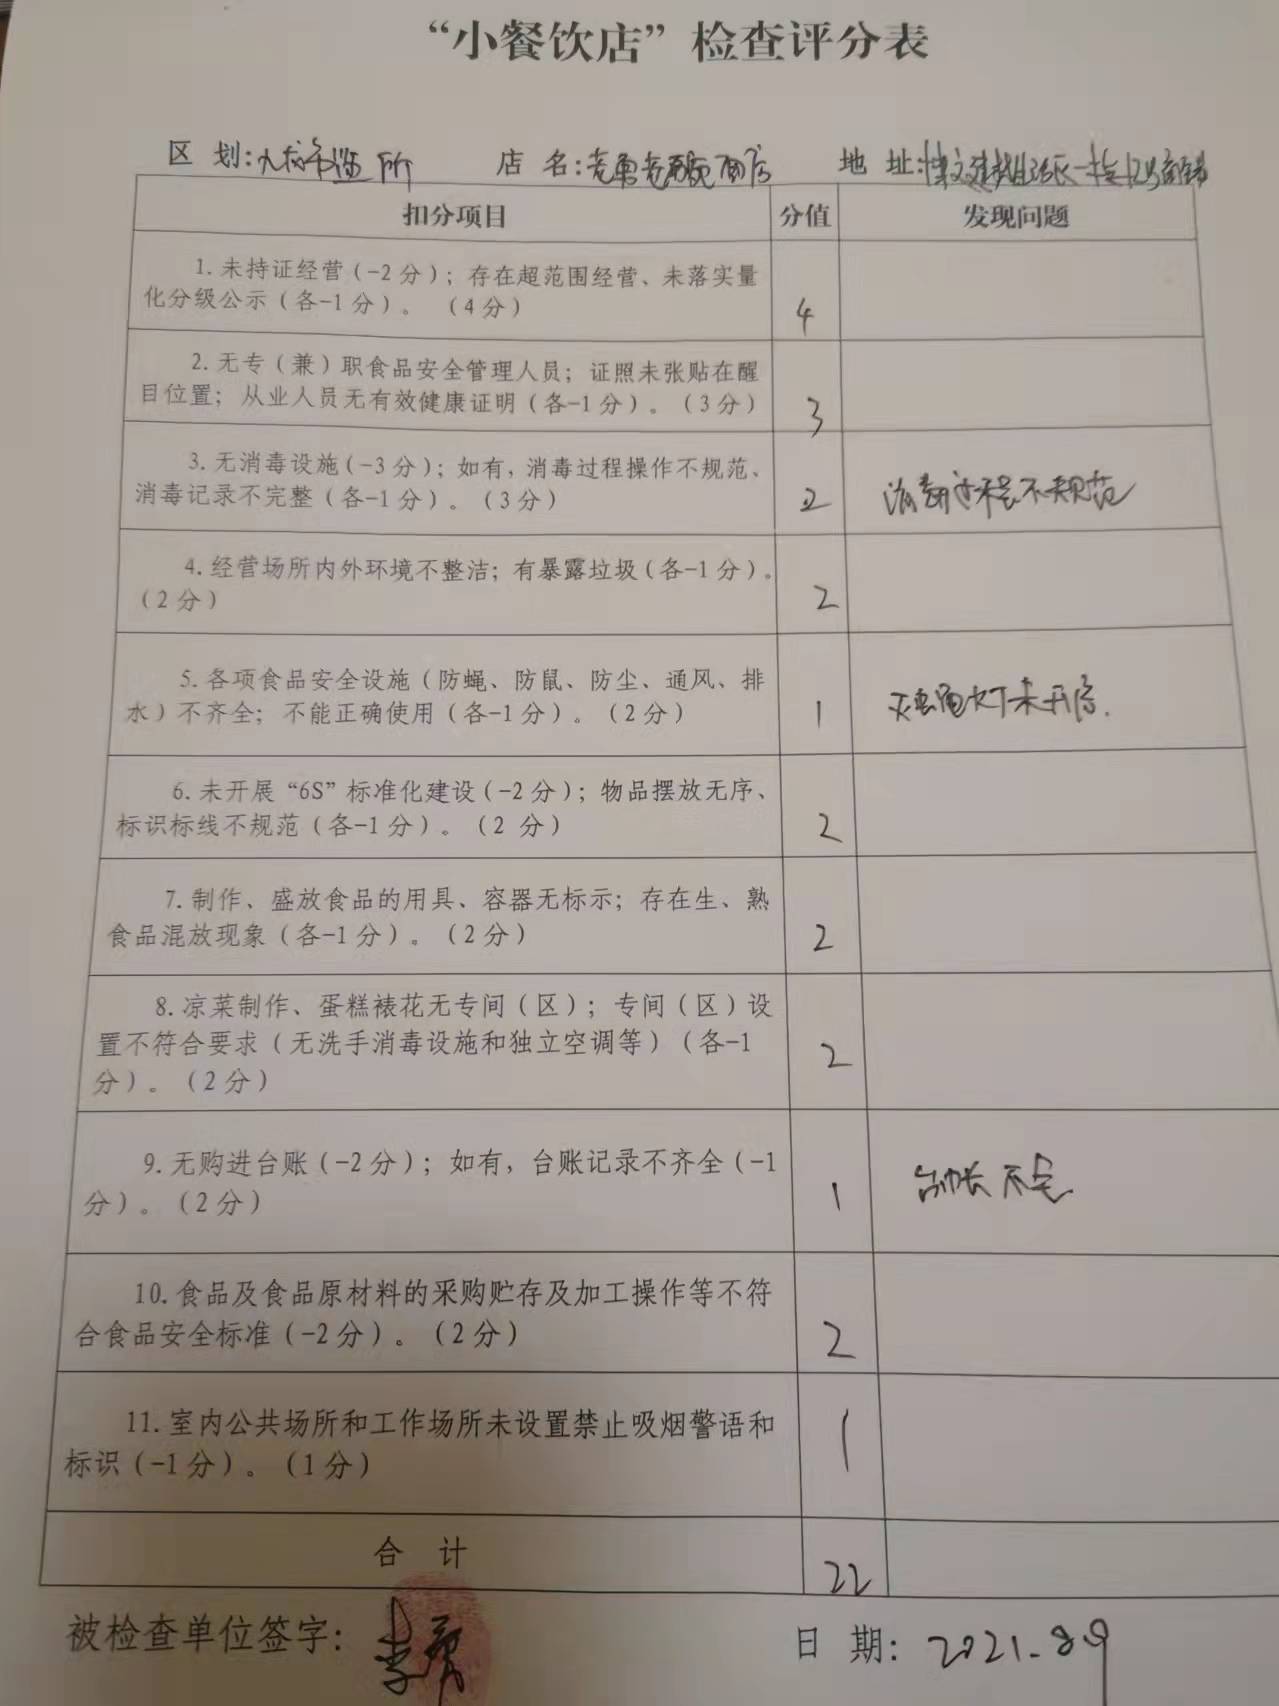 “小餐饮店”检查评分表
区 划: 所 店 名: 面店 地 址:
扣分项目 分值 发现问题
1.未持证经营(-2分)；存在超范围经营、未落实量
化分级公示(各-1分)。 (4分) 4
2.无专(兼)职食品安全管理人员；证照未张贴在醒
目位置；从业人员无有效健康证明(各-1分)。(3分) 3
3.无消毒设施(-3分)；如有,消毒过程操作不规范、
消毒记录不完整(各-1分)。(3分) 2 消毒过程不规范
4.经营场所内外环境不整洁；有暴露垃圾(各-1分)。
(2分) 2
5.各项食品安全设施(防蝇、防鼠、防尘、通风、排
水)不齐全；不能正确使用(各-1分)。(2分) 1 灭蝇灯未开启.
6.未开展“6S”标准化建设(-2分)；物品摆放无序、
标识标线不规范(各-1分)。(2 分) 2
7.制作、盛放食品的用具、容器无标示；存在生、熟
食品混放现象(各-1分)。(2分) 2
8.凉菜制作、蛋糕裱花无专间(区)；专间(区)设
置不符合要求(无洗手消毒设施和独立空调等)(各-1
分)。(2分) 2
9.无购进台账(-2分)；如有,台账记录不齐全(-1
分)。(2分) 1 台帐不全
10.食品及食品原材料的采购贮存及加工操作等不符
合食品安全标准(-2分)。(2分) 2
11.室内公共场所和工作场所未设置禁止吸烟警语和
标识(-1分)。(1分) 1
合 计 22
被检查单位签字: 李勇 日 期: 2021.8.9